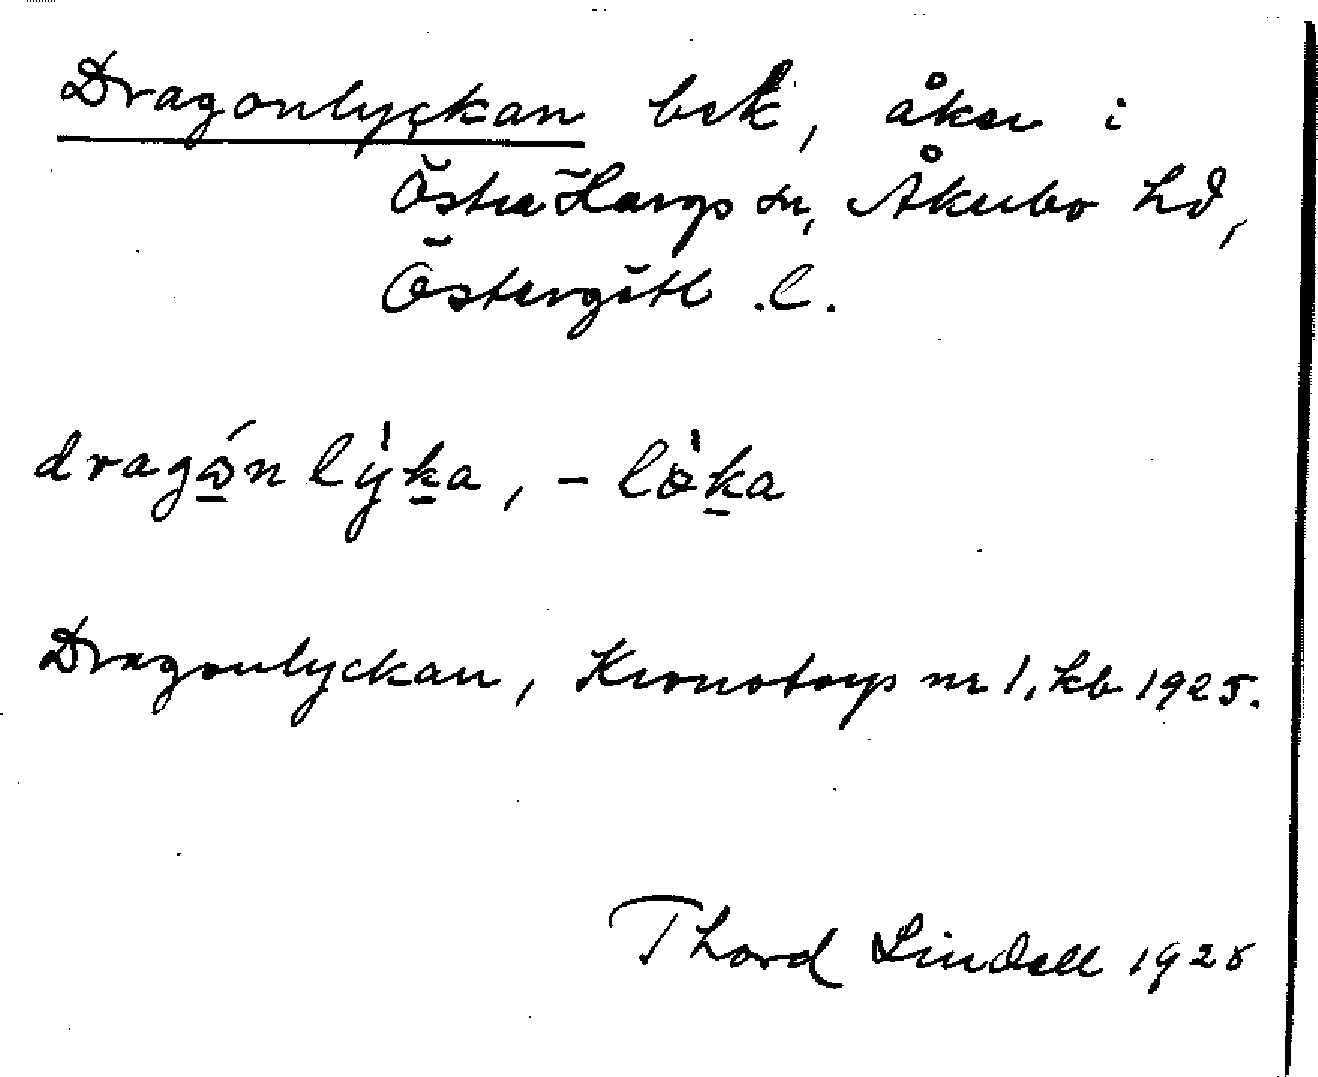 Dragonlyckan bek, åker i
Östra Hargs sn, Åkerbo hd,
Östergötl .l.
dragón lỳka, - lö̀ka
Dragonlyckan, Kronotorp nr 1. kb 1925.
Thord Lindell 1928